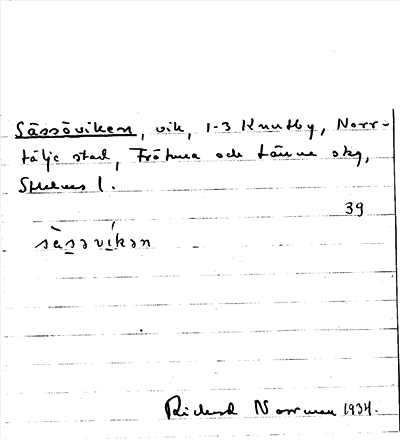 Sässöviken, vik, 1-3 Knutby, Norr-
tälje stad, Frötuna och Länna skg,
Sthlms l.
39
sàsəvíkən
Richard Norrman 1934.